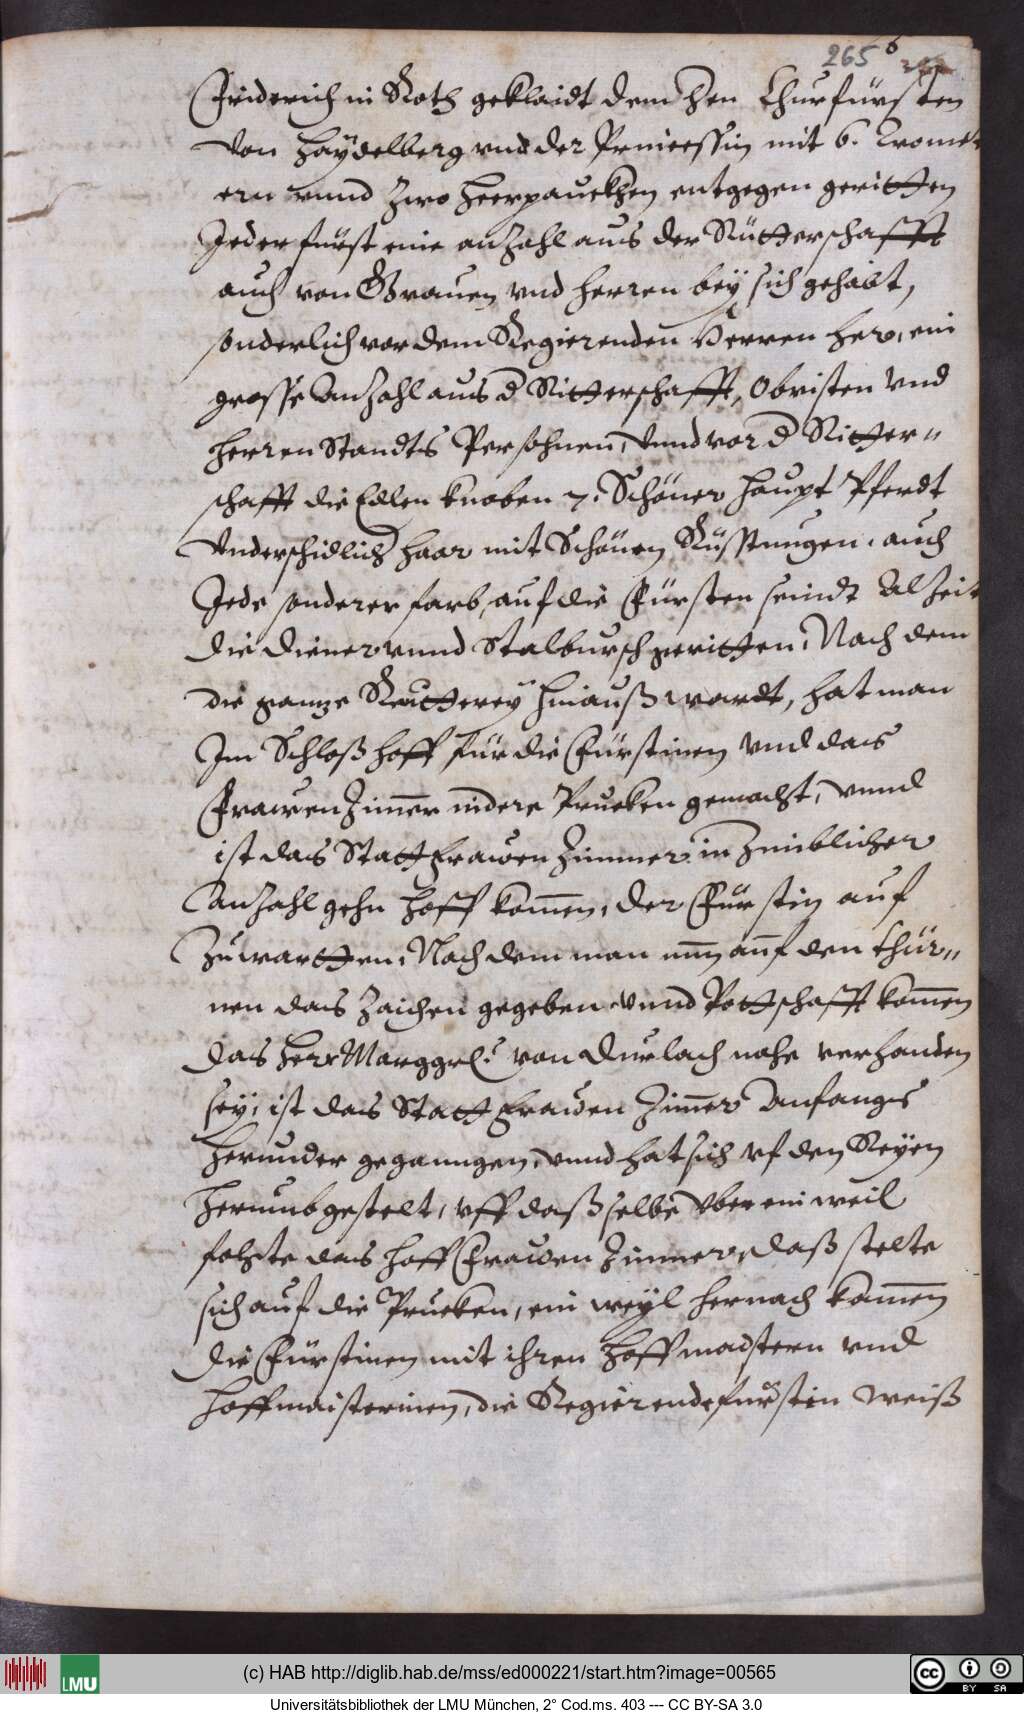 265
Friderich in Roth geklaidt dem hen Churfürsten
von Haÿdelberg vnd der Princessin mit 6. Tromet
ern vnnd Zwo Heerpauckhen entgegen geritten
Jeder fürst eine anzahl aus der Rütterschafft
auch von Grauen vnd herren beÿ sich gehabt,
sonderlich vor dem Regierenden Herren her, ein
grosse Anzahl aus d Ritterschafft, Obristen vnd
herren Standts Persohnen, vnnd vor d Ritter"
schafft die Edlen knaben 7. Schöner haupt Pferdt
Vnderschidlich haar mit Schönen Rüsstungen, auch
Jede sonderer farb, auf die Fürsten seindt Alzeit
die diener vnnd Stalbursch geritten, Nach dem
die ganze Reütterey hinauß wardt, hat man
Im Schloßhoff für die Fürstinen vnd das
Frawen Zimer nidere Prucken gemacht, vnnd
ist das Statt Frawen Zimmer in Zimblicher
Anzahl gehn hoff komen, der Fürstin auf
Zuwartten, Nach dem man nun auf den thür"
nen das Zaichen gegeben vnnd Pottschafft komen
das herr Marggr. von Durlach nahe verhanden
seÿ, ist das Statt Frawen Zimer Anfangs
herunder gegangen, vnnd hat sich vf den Reÿen
herumb gestelt, vff daßselbe vber ein weil
folgte das hoff Frawen Zimmer, daß stelte
sich auf die Prucken, ein weÿl hernach kamen
die Fürstinen mit ihren hoffmaistern vnd
hoffmaisterinen, die Regierende fürstin weiß
(c) HAB http://diglib.hab.de/mss/ed000221/start.htm?image=00565
LMU
cc BY SA
Universitätsbibliothek der LMU München, 2° Cod.ms. 403 --- CC BY-SA 3.0